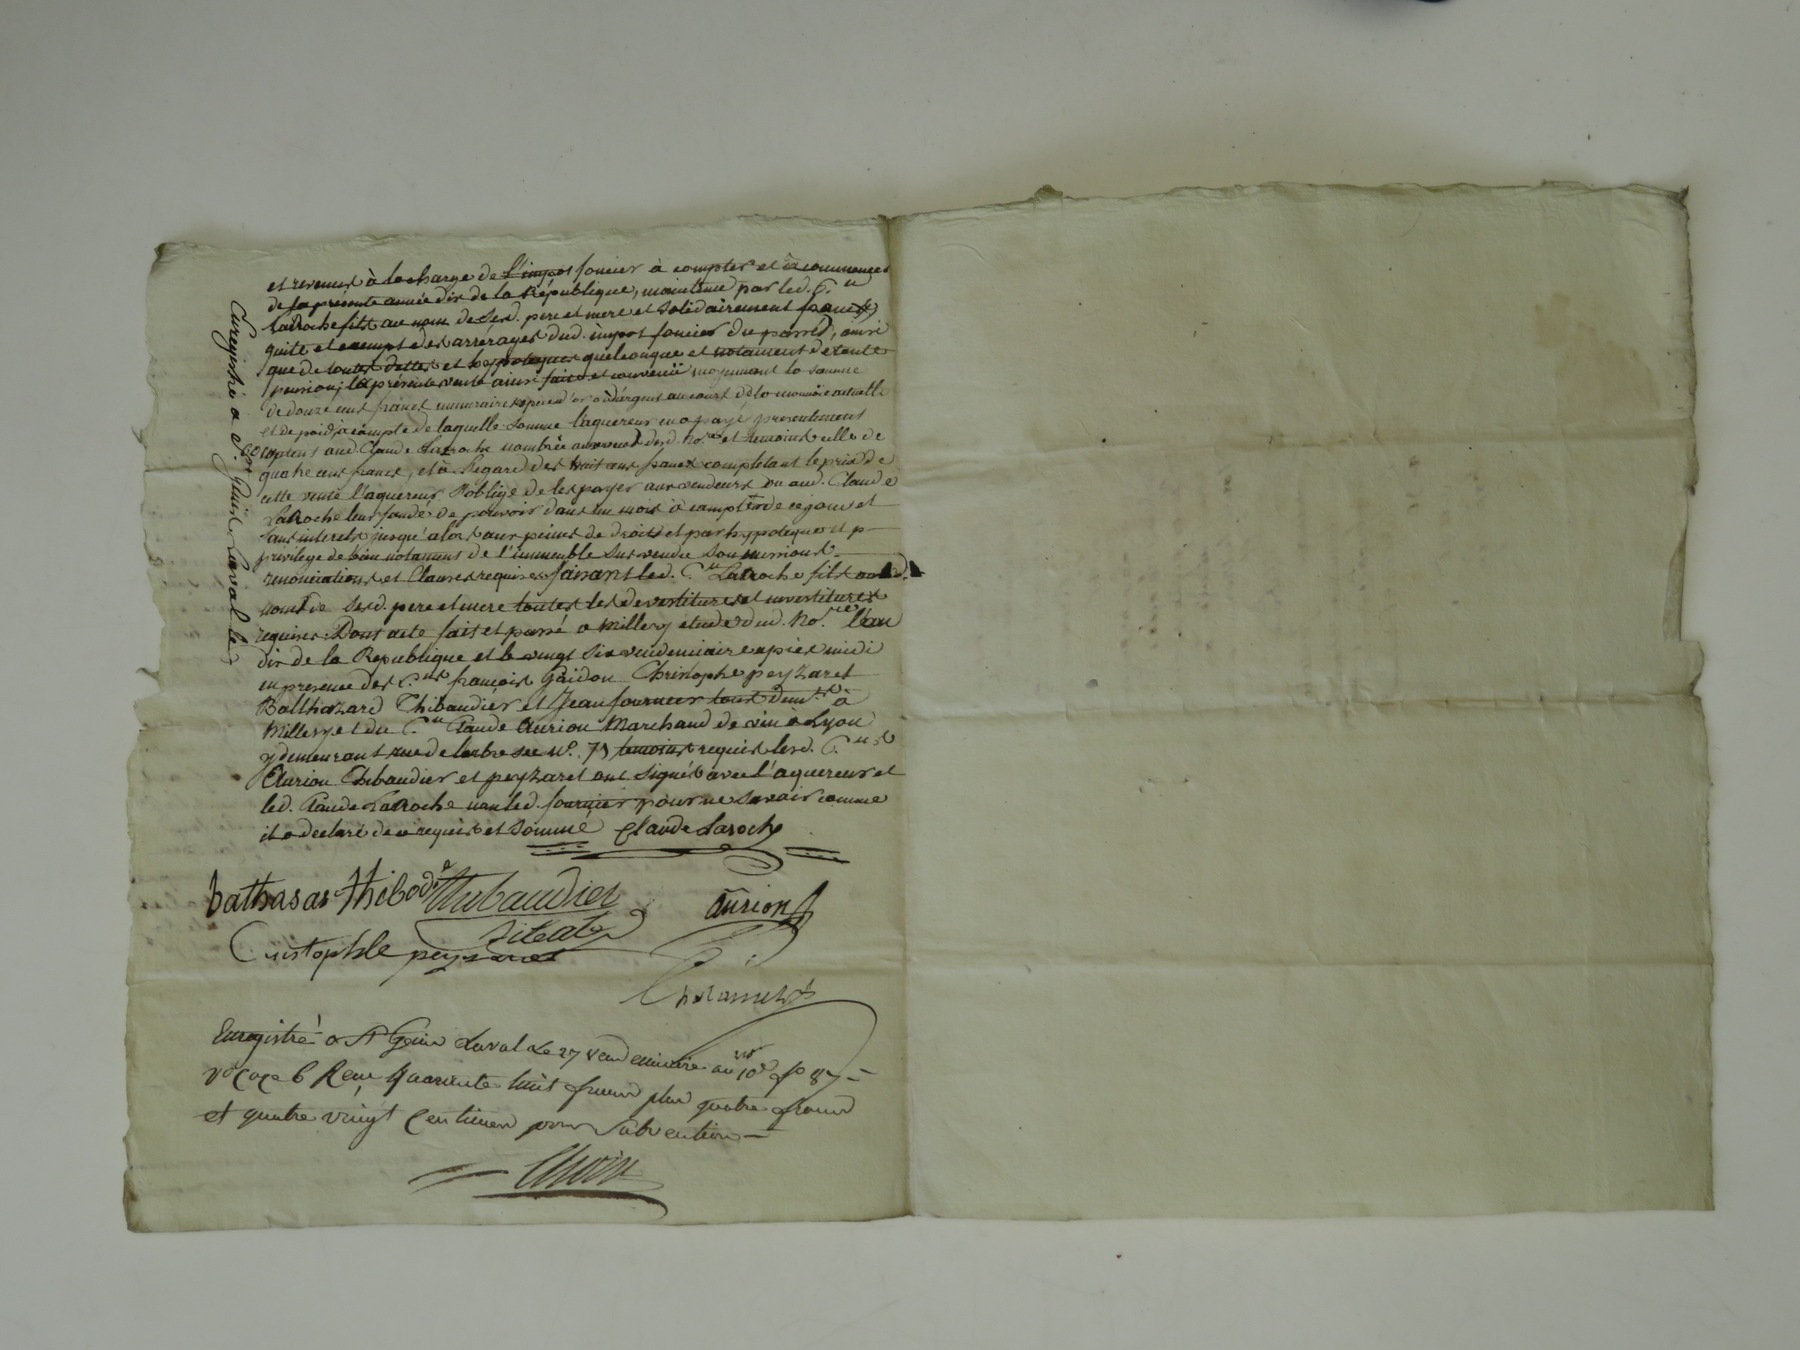 et revenus à la charge de l'impot foncier à compter et à commencer
de la présente année dix de la République, maintenue par led. C.en
LaRoche fils au nom de sesd. pere et mere et solidairement franche,
quite et exempt des arrerages dud. impot foncier du passé, ainsi
que de toutes dettes et hypoteques quelconque et notament de toute
pension, la présente vente ainsi faite et convenue moyennant la somme
de douze cens francs numeraire especes d'or ou d'argent au cours de la monnoie actuelle
et de poid, acompte de laquelle somme l'aquereur en a payé presentement
comptens aud. Claude Laroche nombrée au vu desd. No.res et temoins celle de
quatre cens francs, et à l'egard des huit cens francs completant le prix de
cette vente l'aquereur s'oblige de les payer aux vendeurs ou aud. Claude
LaRoche leur fondé de pouvoir dans un mois à compter de ce jour et
sans interets jusqu'alors aux peines de droits et par hypoteque et p
privilege de bau notament de l'immeuble sus vendu soumissions
renonciations et Clauses requises faisant led. C.en LaRoche fils aud.
nom de sesd. pere et mere toutes les devestitures et investitures
requises. Dont acte fait et passé a Millery etude dud. No.re l'an
dix de la Republique et le vingt six vendemiaire apres midi
en presence des C.ens francois Gaidon Christophe peyzaret
Balthazard Thibaudier et Jean fournier tous dem.ts à
Millery et du C.en Claude Aurion Marchand de vin à Lyon
y demeurant rue de larbre sec N°. 73 temoins requis lesd. C.ens
Aurion Thibaudier et peyzaret ont signés avec l'aquereur et
led. Claude LaRoche non led. fournier pour ne savoir comme
il a declaré de ce requis et sommé Claude Laroche
bathasar thibodie Thibaudier aurion
Cristophle peyzaret
Enregistré a St Genis Laval le 27 vendemiaire an 10e fo 87
vo Case 6 Reçu quarante huit francs plus quatre francs
et quatre vingt Centimes pour Subvention
Enregistré a St. Genis Laval le